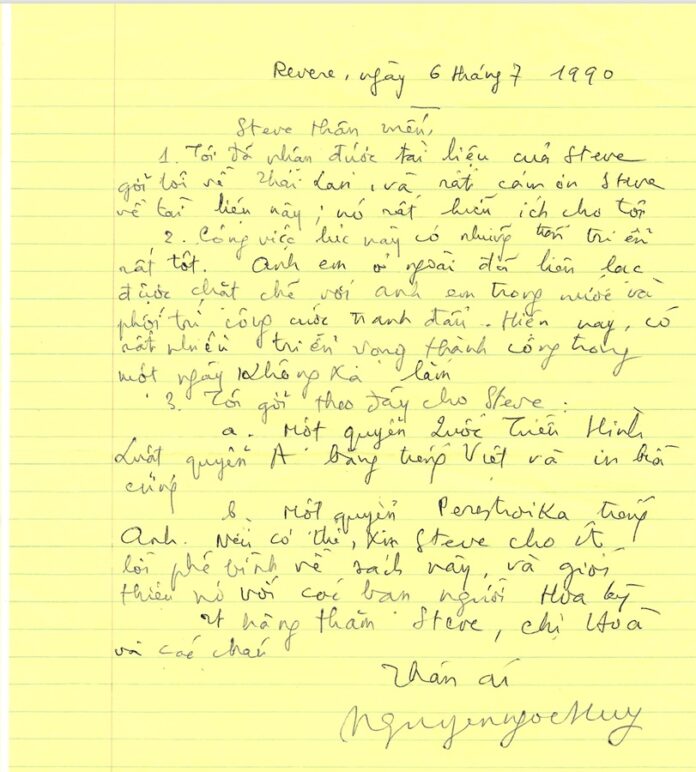 Revere, ngày 6 tháng 7 1990
Steve thân mến,
1. Tôi đã nhận được tài liệu của Steve
gởi tôi về Thái Lan, và rất cám ơn Steve
về tài liệu này; nó rất hữu ích cho tôi
2. Công việc lúc này có những tiến triển
rất tốt. Anh em ở ngoài đã liên lạc
được chặt chẽ với anh em trong nước và
phối trí công cuộc tranh đấu. Hiện nay, có
rất nhiều triển vọng thành công trong
một ngày không xa lắm
3. Tôi gởi theo đây cho Steve:
a. Một quyển Quốc Triều Hình
Luật quyển A bằng tiếng Việt và in bìa
cứng
b. Một quyển Perestroika tiếng
Anh. Nếu có thể, xin Steve cho ít
lời phê bình về sách này, và giới
thiệu nó với các bạn người Hoa kỳ
hằng thăm Steve, chị Hoà
và các cháu
Thân ái
Nguyenngochuy